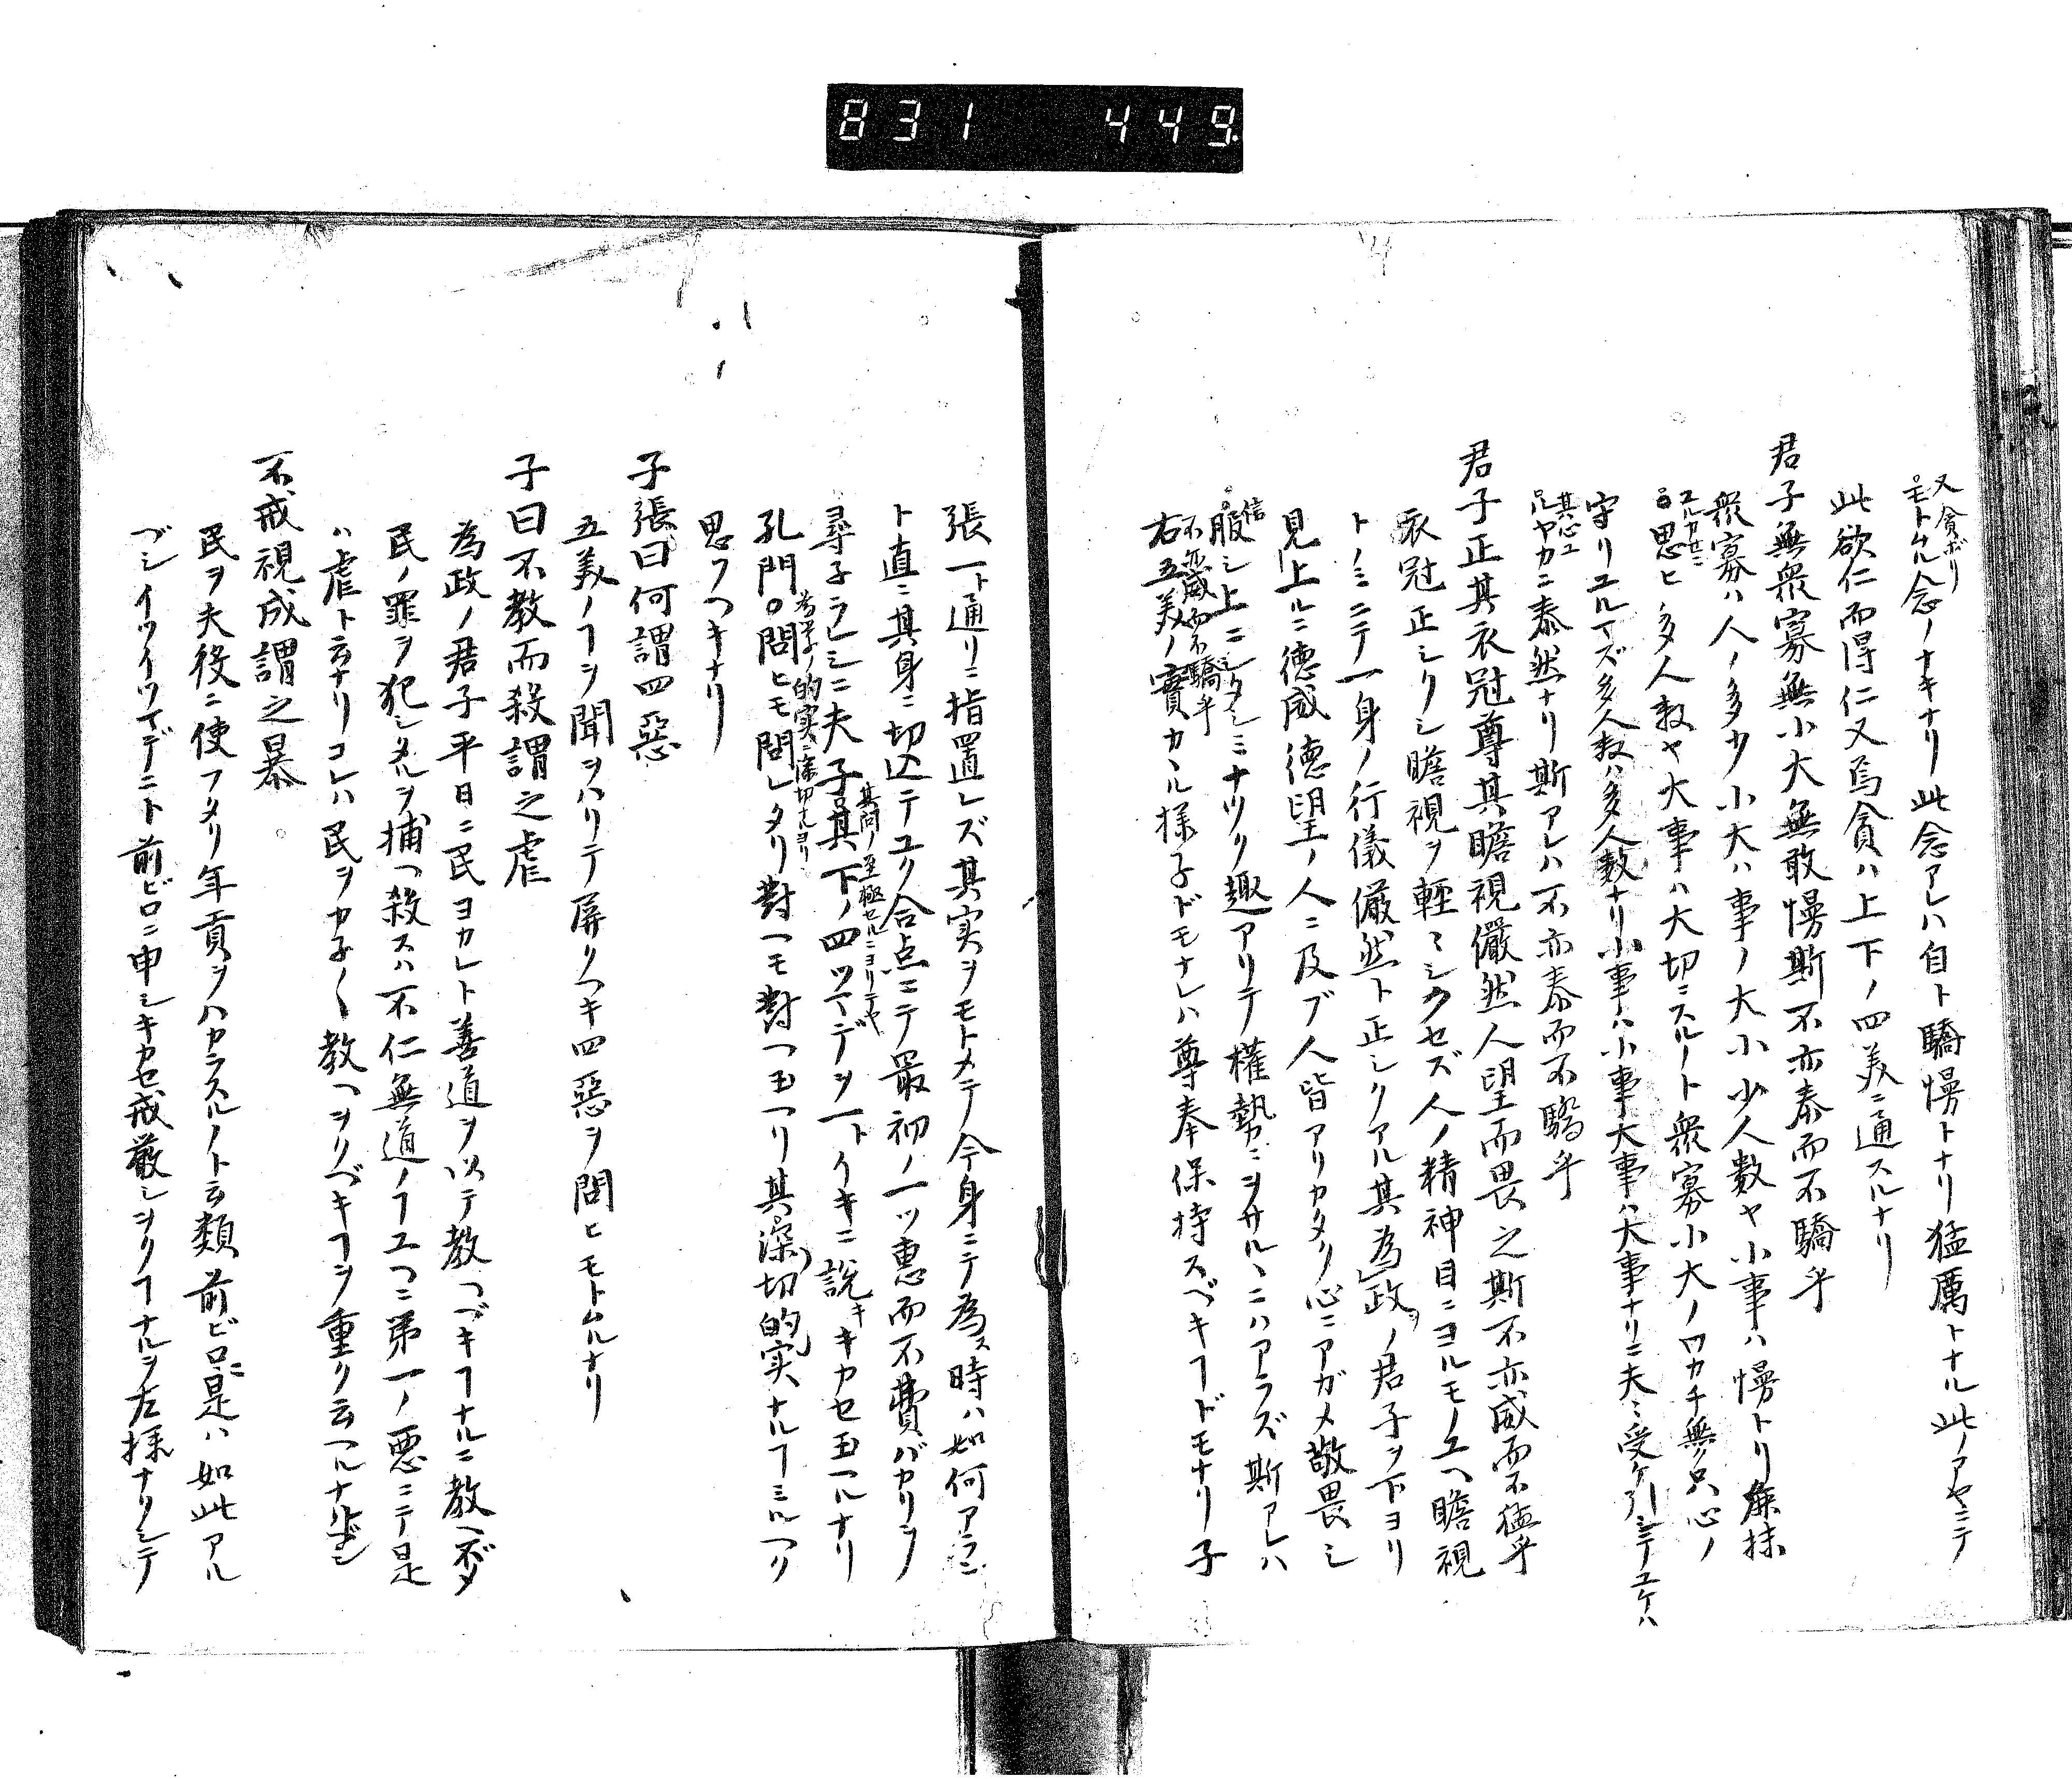 831 449.
モトムル念ノナキナリ此念アレハ自ト驕慢トナリ猛厲トナル此ノアヤニテ
又貪ボリ
此欲仁而得仁又焉貪ハ上下ノ四美ニ通スルナリ
君子無衆寡無小大無敢慢斯不亦泰而不驕乎
衆寡ハ人ノ多少小大ハ事ノ大小少人数ヤ小事ハ慢トリ麁抹
ニ思ヒ多人数ヤ大事ハ大切ニスルノト衆寡小大ノワカチ無ク只心ノ
ユルカセニ
守リユルマズ多人数ハ多人数ナリ小事ハ小事大事ハ大事ナリニ夫ミ受ケ引シテユケハ
其心ユ
ルヤカニ泰然ナリ斯アレハ不亦泰而不驕乎
君子正其衣冠尊其瞻視儼然人望而畏之斯不亦威而不猛乎
衣冠正シクシ瞻視ヲ軽ミシクセズ人ノ精神目ニヨルモノユヘ瞻視
トノミニテ一身ノ行儀儼然ト正シクアル其為政ノ君子ヲ下ヨリ
見上ルニ徳威徳望ノ人ニ及ブ人皆アリカタク心ニアガメ敬畏シ
信
服シ上ニシタシミナツク趣アリテ權勢カニヲサルヽニハアラズ斯アレハ
不亦威而不驕乎
右五美ノ實カヽル様子ドモナレハ尊奉保持スベキヿドモナリ子
張一ト通リニ指置レズ其実ヲモトメテ今身ニテ為ス時ハ如何アラン
ト直ニ其身ニ切込テユク合点ニテ最初ノ一ツ惠而不費バカリヲ
尋子ラレシニ夫子其下ノ四ツマデヲ一トイキニ説キキカセ玉フルナリ
其問ノ至極セルニヨリテヤ
孔門ノ問ヒモ問レタリ對ヘモ對ヘ玉ヘリ其深切的実ナルヿミルヘク
為学ノ的実ニ深切ナルヨリ
思フヘキナリ
子張曰何謂四惡
五美ノヿヲ聞ヲハリテ屏クヘキ四惡ヲ問ヒモトムルナリ
子曰不教而殺謂之虐
為政ノ君子平日ニ民ヨカレト善道ヲ以テ教ヘヅキヿナルニ教ヘズ
民ノ罪ヲ犯シタルヲ捕ヘ殺スハ不仁無道ノヿユヘニ第一ノ悪ニテ是
ハ虐ト云ナリコレハ民ヲカ子〱教ヘヲクベキヿヲ重ク云ヘルナルベシ
不戒視成謂之暴
民ヲ夫役ニ使フタリ年貢ヲハカラスルノト云類前ビロニ是ハ如此アル
ヅシイツイツマデニト前ビロニ申シキカセ戒厳シヲクヿナルヲ左様ナクシテ